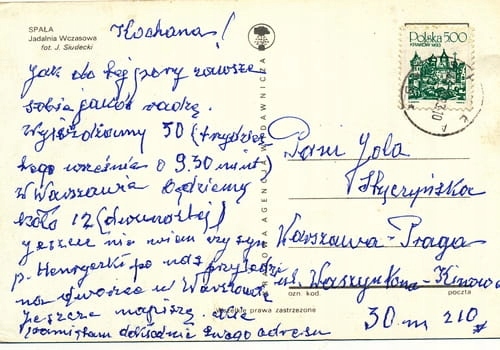 SPAŁA
Jadalnia Wczasowa
fot. J. Siudecki
Kochana!
Jak do tej pory zawsze
sobie jakoś radzę.
Wyjeżdżamy 30 (trzydzies
tego września o 9.30 minut
w Warszawie będziemy
koło 12 (dwunastej)
jeszcze nie wiem czy syn
p. Henryczki po nas przyjedzie
na dworzec w Warszawie
jeszcze napiszę.
pamiętam dokładnie twego adresu
Polska 5.00
Pani Jola
Styczyńska
Warszawa-Praga
ul. Waszyngtona-Kinowa
30 m 210
ozn. kod.
poczta
Wszelkie prawa zastrzeżone